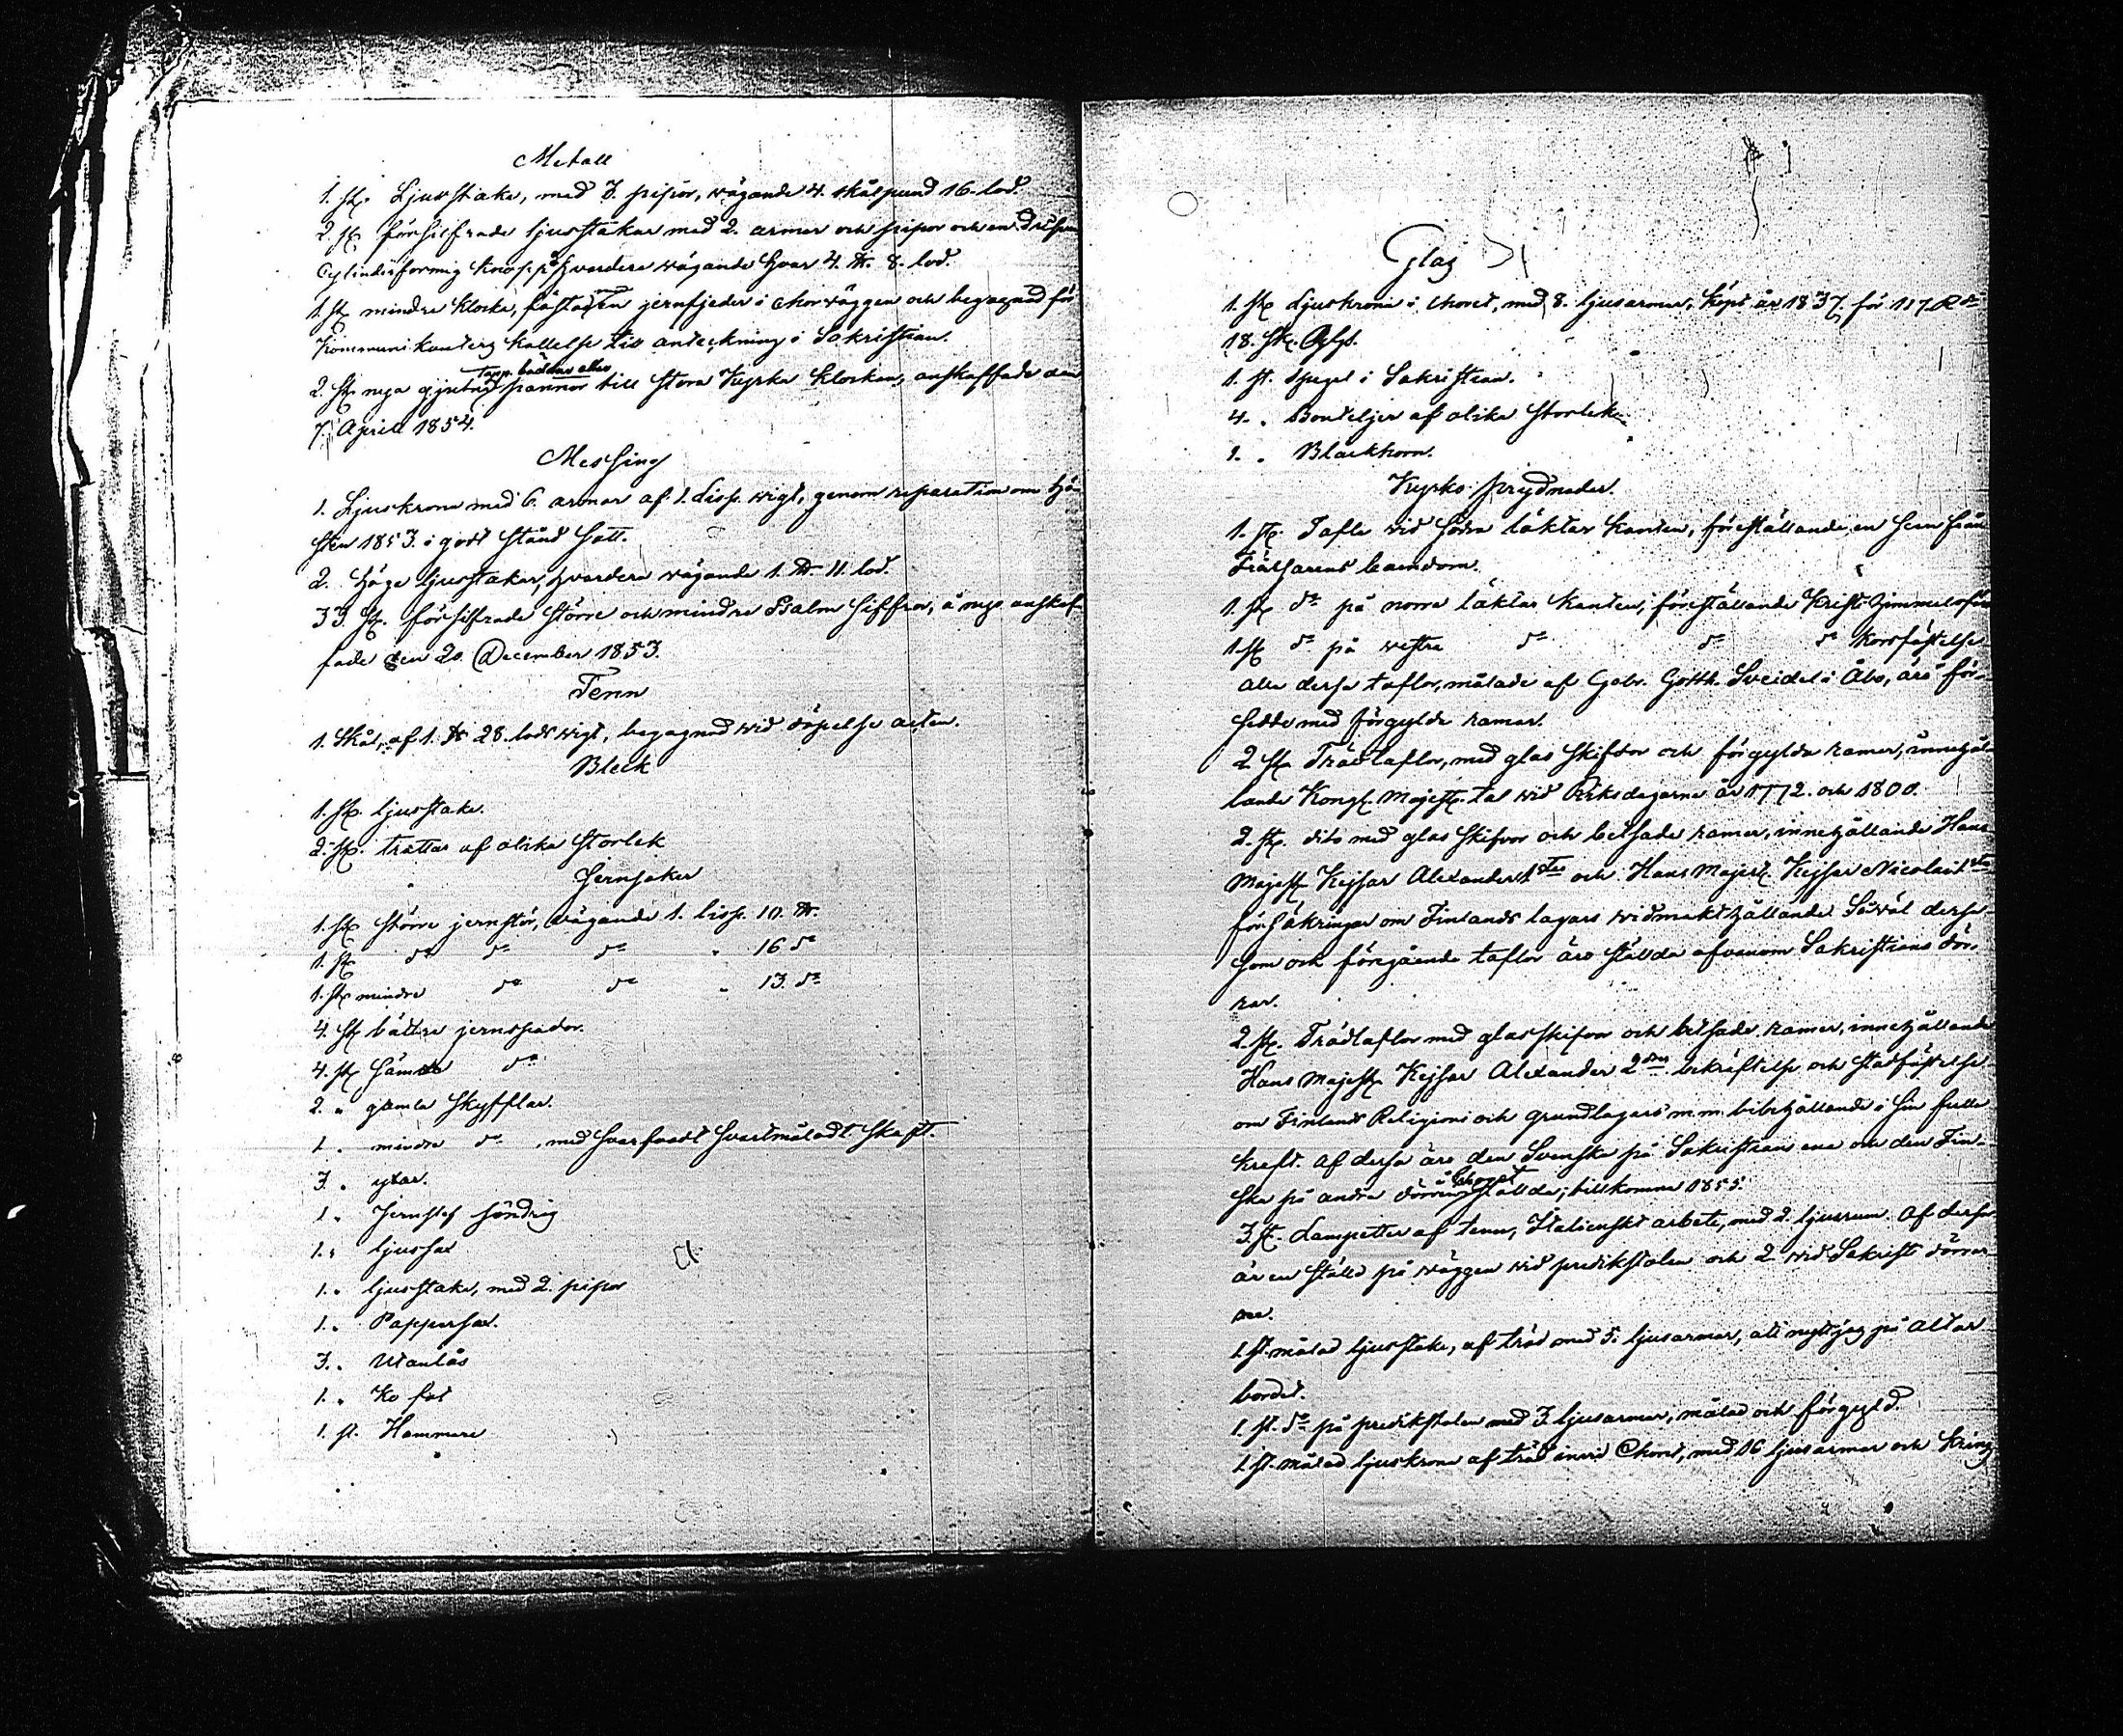 Metall
1. st. Ljusstake, med 3. pipor, wägande 4. skålpund 16. lod.
2 st. försilfrade ljusstakar med 2. armar och pipor och en
Cylinderformig knopp på hvardera wägande hvar 4. ℔. 8. lod.
1. st mindre klocka, fästad wid en jernfjeder i chorwäggen och begagnad för
Kommunikanters kallelse till anteckning i Sakristian.
2. st. nya gjutna Tapp bäckar eller pannor till stora Kyrko klockan, anskaffade den
7. April 1854.
Messing
1. Ljuskrona med 6. armar af 1. Lisp. wigt, genom reparation om hö-
sten 1853. i godt stånd satt.
2. höga ljusstakar, hvardera wägande 1. ℔. 11. lod.
33. st. försilfrade större och mindre Psalm siffror, å nyo anskaf-
fade den 20. December 1853.
Tenn
1. Skål, af 1. ℔ 28. lods wigt, begagnad wid döpelse acten.
Bleck
1. st. ljusstake.
2. st. trattar af olika storlek
Jernsaker
1. st större jernstör, wägande 1. lisp. 10. ℔.
1. st do do do „ 16 do
1. st mindre do do „ 13. do
4. st bättre jernspador.
4. st sämre do
2. „ gamla skyfflar.
1 „ mindre do, med svarfvadt svartmåladt skaft.
3. „ yxar.
1 „ Jernslef söndrig
1. „ ljussax
1. „ ljusstake, med 2. pipor
1. „ Papperssax.
3. „ Utanlås
1. „ Ko fot
1. st. Hammare
Glas
1. st Ljuskrona i choret, med 8. ljusarmar, köpt år 1837 för 117 R
18. sk. Rgds.
1. st. spegel i Sakristian.
4. „ Bouteljer af olika storlek
1. „ Bläckhorn.
Kyrko prydnader.
1. st. Tafla wid södra läktar kanten, föreställande en scen från
Frälsarens barndom.
1. st do på norra läktar kanten, föreställande Kristi himmelsfär
1. st do på westra do do do Korsfästelse
alla dessa taflor, målade af Gabr. Gotth. Sveidel i Åbo, äro för-
sedde med förgylda ramar.
2 st. Trädtaflor, med glas skifvor och förgylda ramar, innehål-
lande Kongl. Majest. tal wid Riksdagarna år 1772. och 1800.
2. st. dito med glas skifvor och betsade ramar, innehållande Hans
Majest Kejsar Alexander 1stes och Hans Majest. Kejsar Nicolai 1stes
försäkringar om Finlands lagars widmakthållande. Såwäl dessa
som ock föregående taflor äro ställda ofvanom Sakristians dör-
rar.
2. st. Trädtaflor med glas skifvor och betsade ramar, innehållande
Hans Majest Kejsar Alexander 2dres bekräftelse och stadfästelse
om Finlands Religions och grundlagars m.m. bibehållande i sin fulla
kraft. af dessa äro den Svenska på Sakristians ena och den Fin-
ska på andra dörren i Choret ställda; tillkomna 1855.
3. st. Lampetter af tenn, Italienskt arbete, med 2. ljusrum. af dessa
är en ställd på wäggen wid predikstolen och 2 wid Sakristi dörrar-
na.
1. st. målad ljusstake, af träd med 5. ljusarmar, att nyttjas på Altar
bordet.
1. st. do på predikstolen med 3. ljusarmar, målad och förgyld.
1. st. målad ljuskrona af träd inwid Choret, med 16 ljusarmar och kring